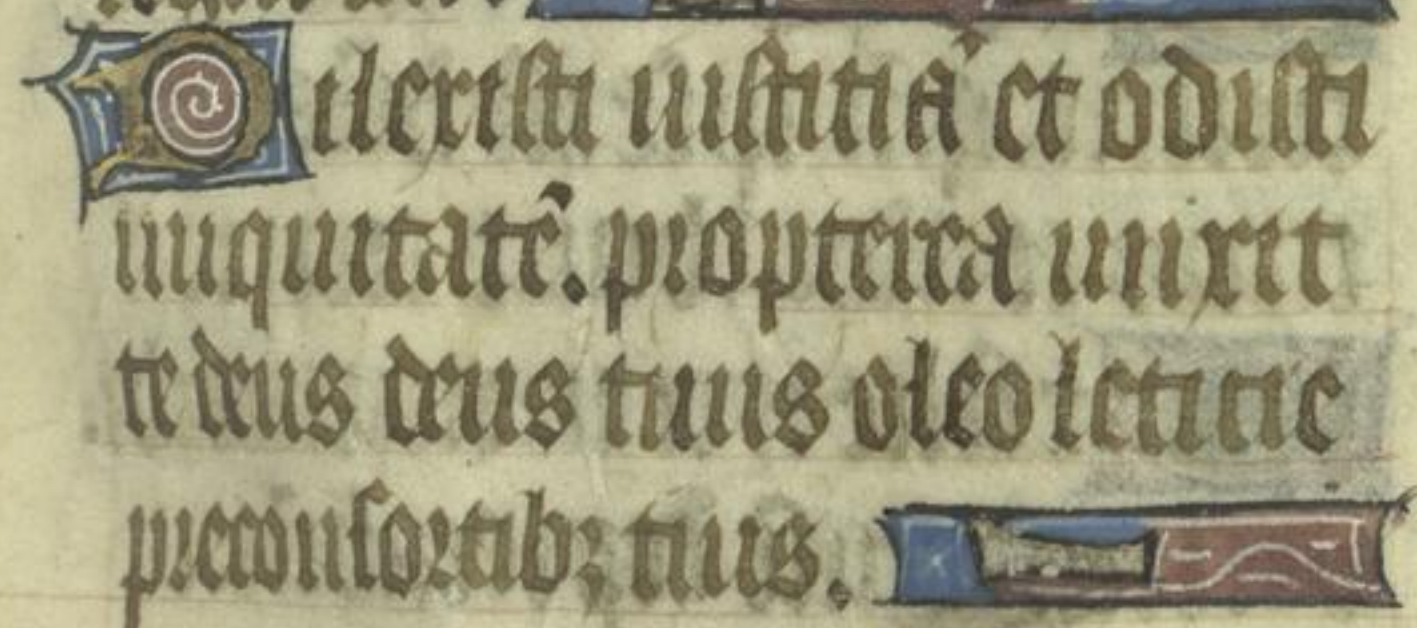 Dilexisti iusticiā et odisti
iniquitatē. propterea unxit
te deus deus tuus oleo leticie
preconsortibꝫ tuis.